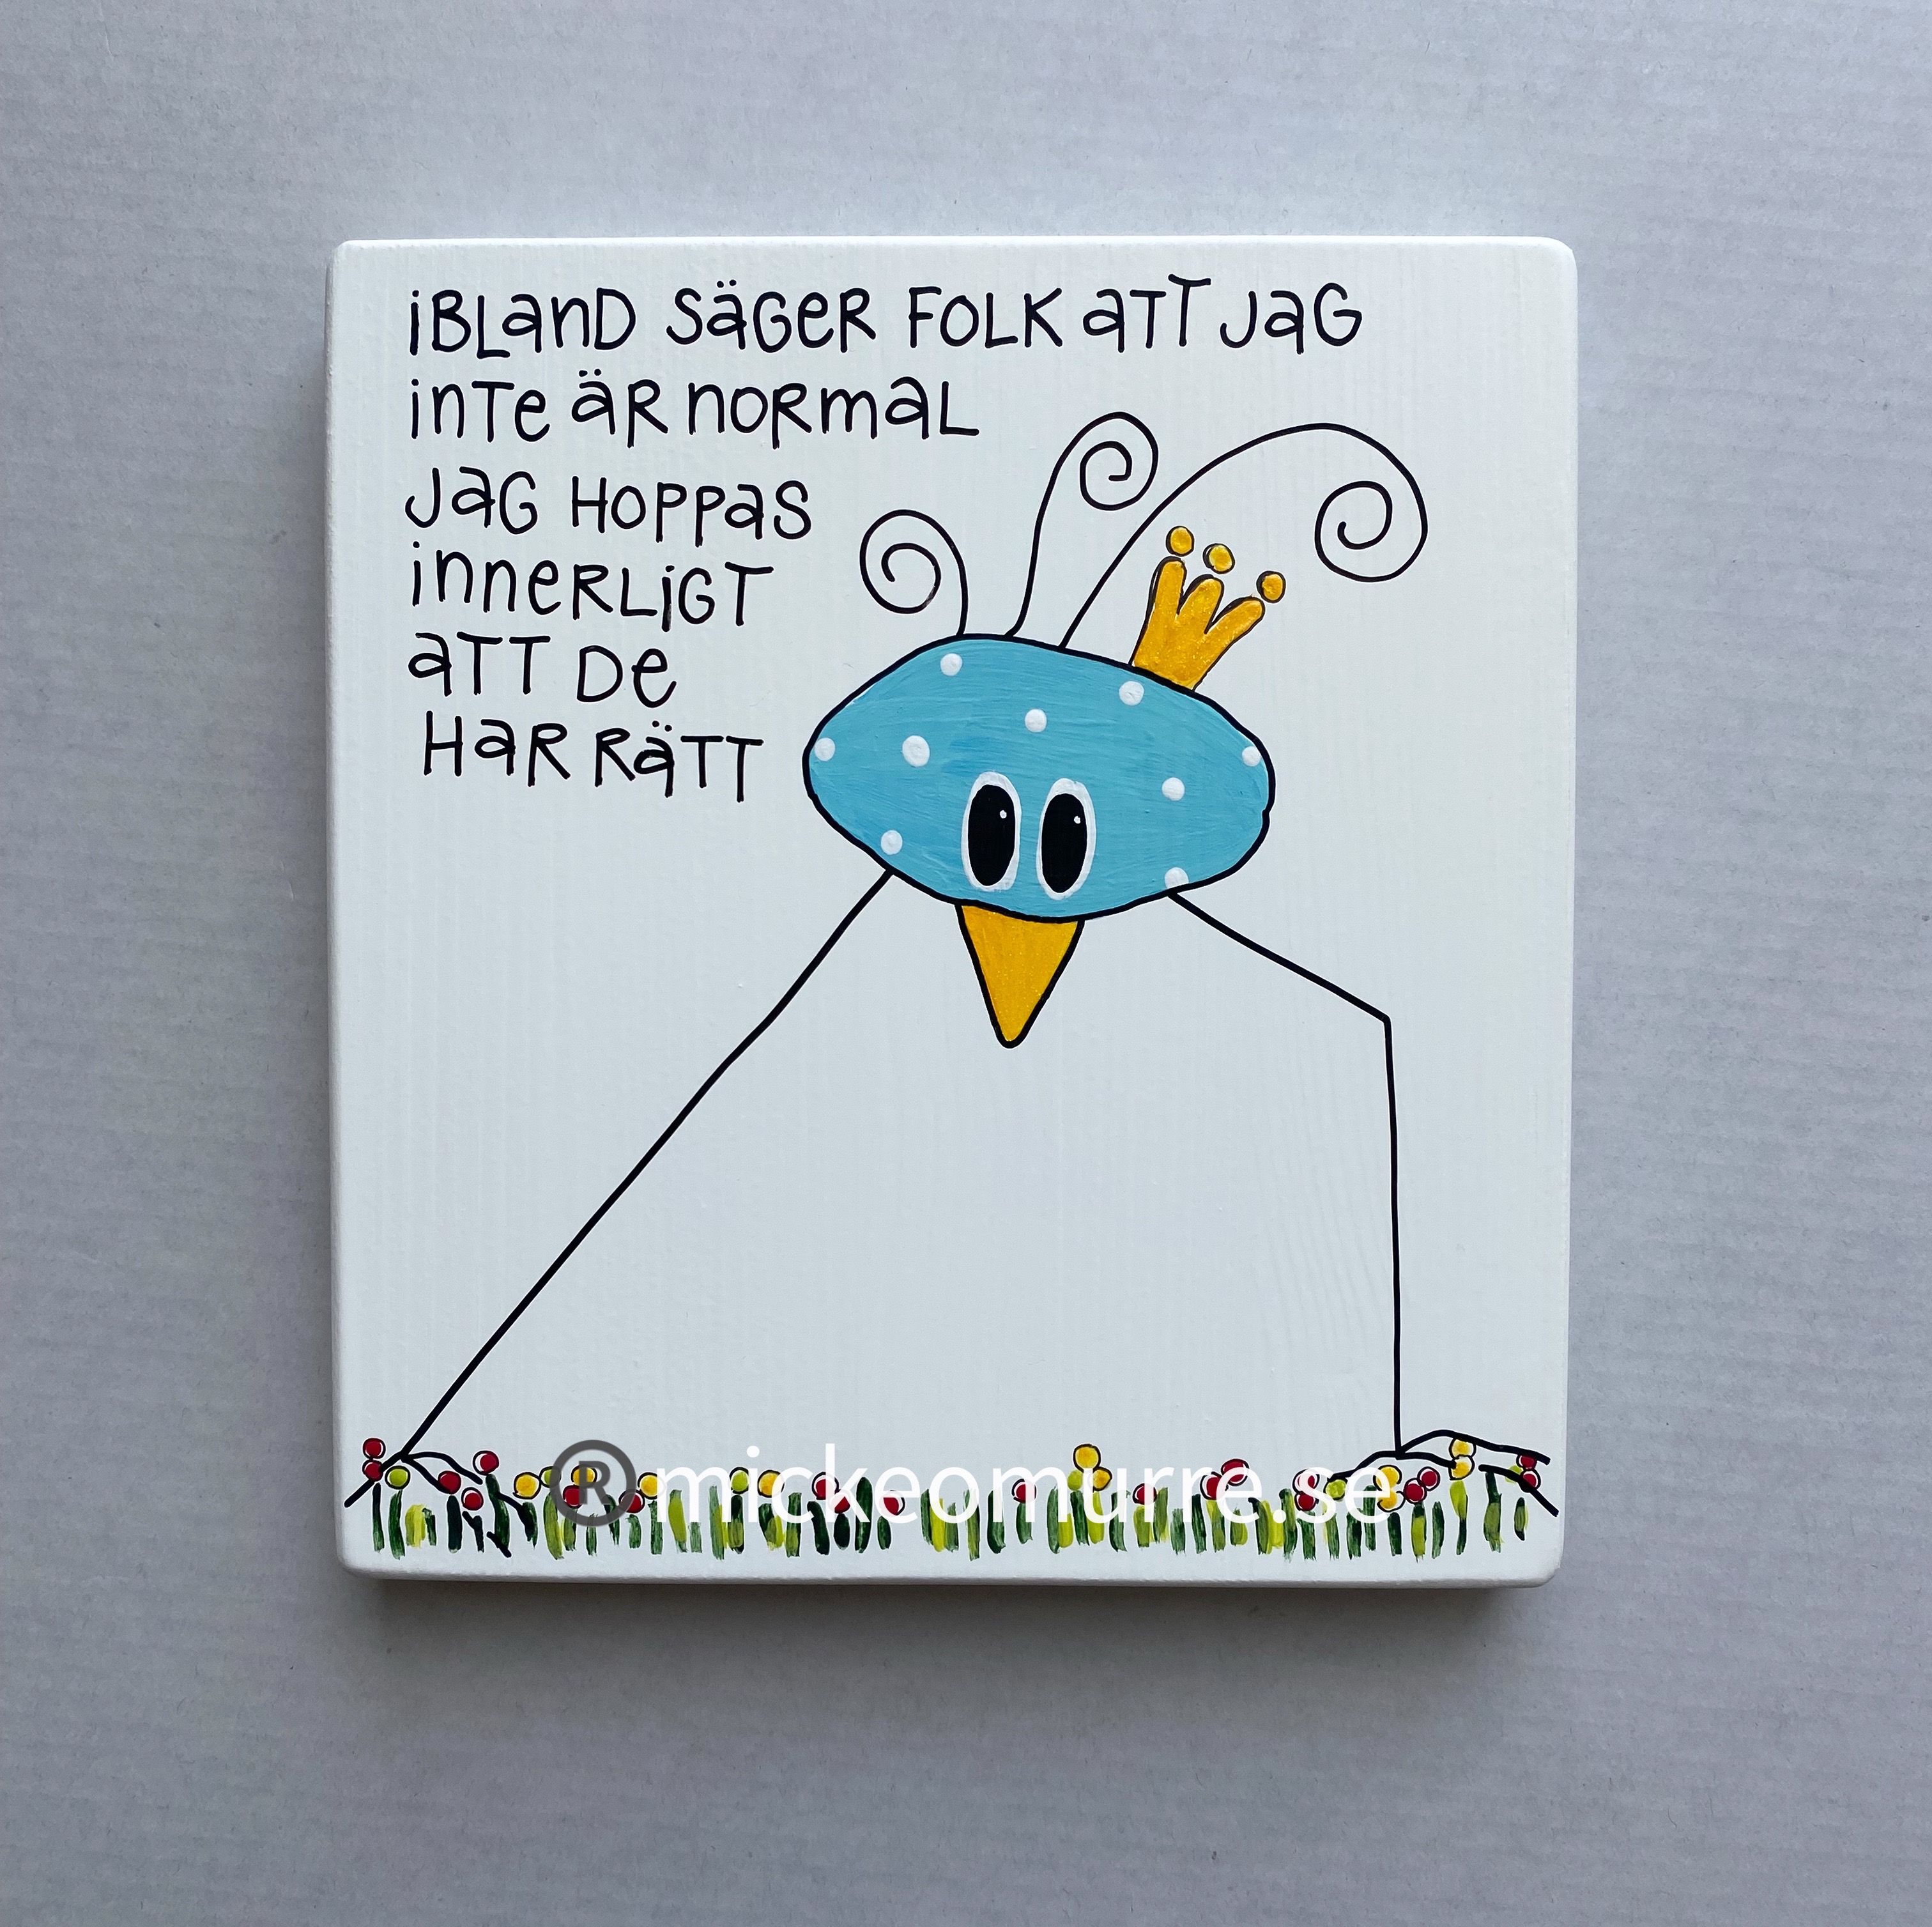 iBLanD SäGeR FOLK aTT JaG
inTe äR nORmaL
JaG HOPPaS
inneRLiGT
aTT De
HaR RäTT
®mickeomurre.se